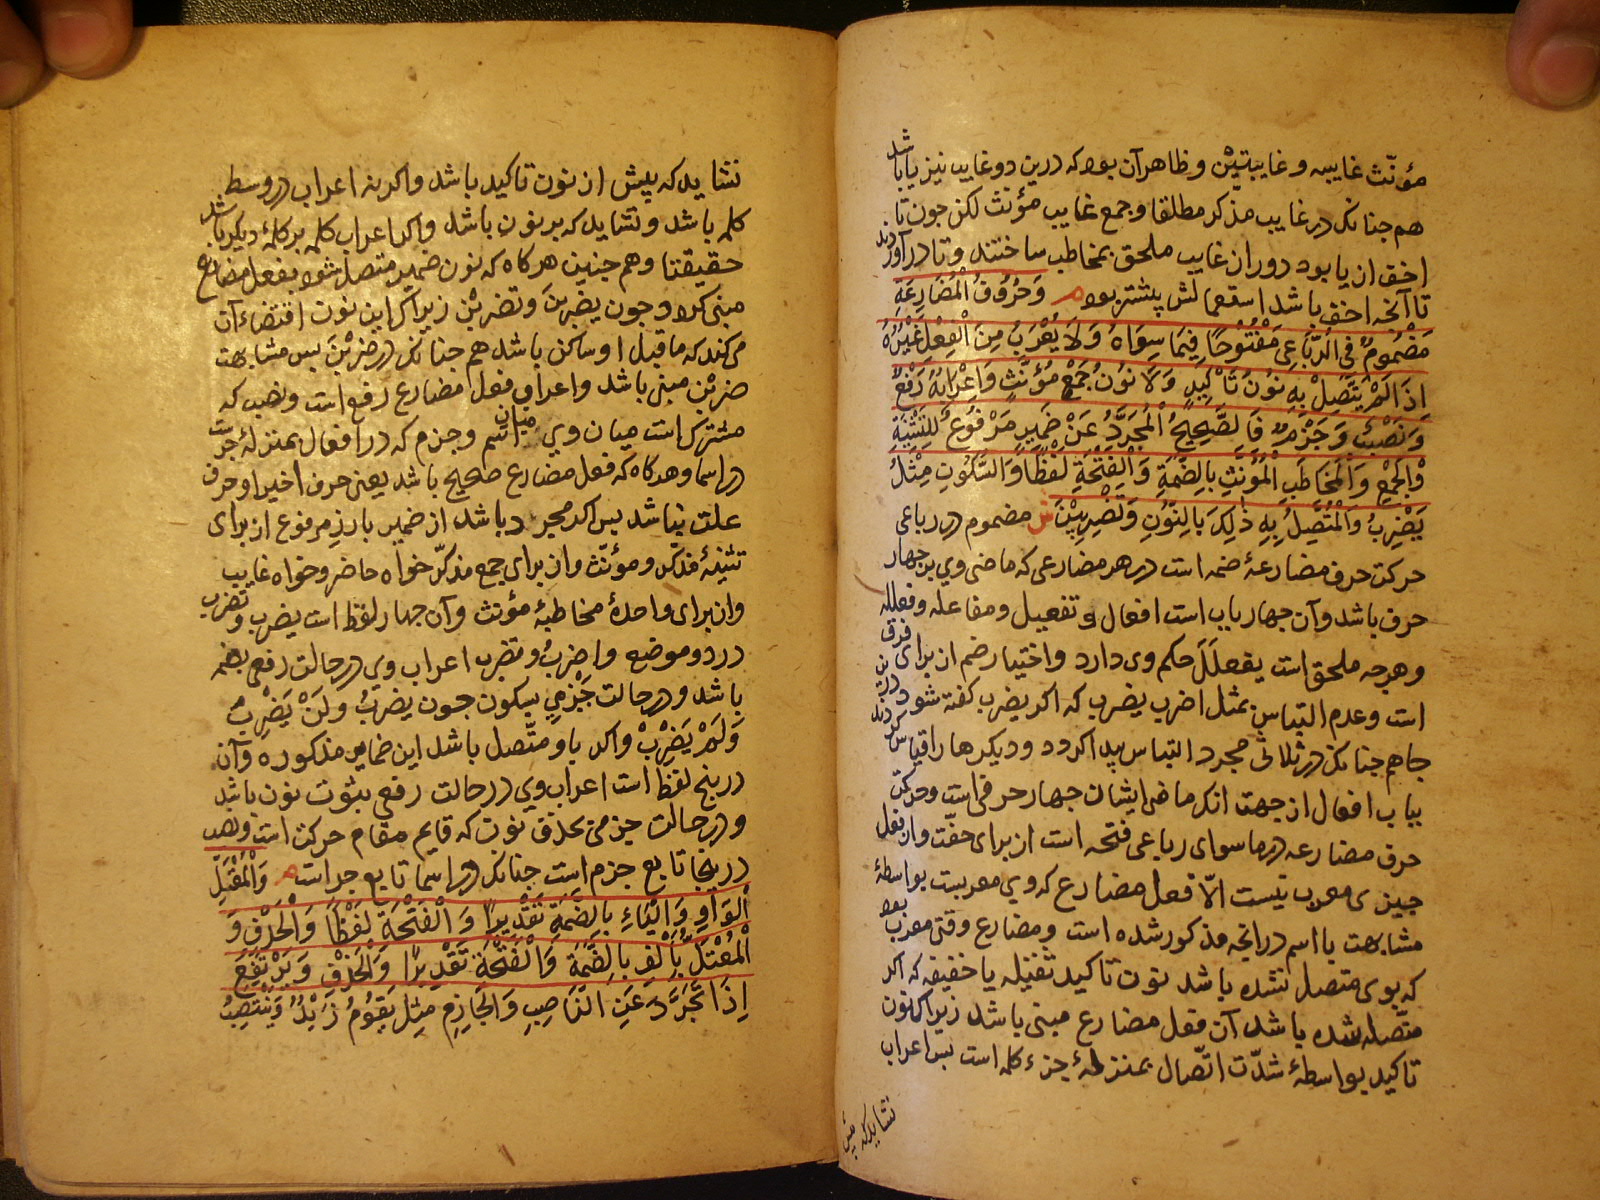 مؤنّث غایبه و غایبتین و ظاهر آن بود که درین دو غایب نیز یا باشد
هم جنانک در غایب مذکر مطلقا و جمع غایب مؤنث لکن جون تا
اخف از یا بود دوران غایب ملحق بمخاطب ساختند و تا در آوردند
تا آنچه اخف باشد استعمالش پیشتر بود م وَحُرُوفُ الْمُضَارِعَةِ
مَضْمُومٌ فِي الرُّبَاعِي مَفْتُوحًا فِيمَا سِوَاهُ وَلَا يُعْرَبُ مِنَ الْفِعْلِ غَيْرُهُ
اِذَا لَمْ يَتَّصِلْ بِهِ نُونُ تَاْكِيدٍ وَلَا نُونُ جَمْعِ مُؤَنَّثٍ وَاِعْرَابُهُ رَفْعٌ
وَنَصْبٌ وَجَزْمٌ فَالصَّحِيحُ الْمُجَرَّدُ عَنْ ضَمِيرٍ مَرْفُوعٍ لِلتَّثْنِيَةِ
وَالْجَمْعِ وَالْمُخَاطَبِ الْمُؤَنَّثِ بِالضَّمَّةِ وَالْفَتْحَةِ لَفْظًا وَالسَّكُونِ مِثْلُ
يَضْرِبُ وَالْمُتَّصِلُ بِهِ ذٰلِكَ بِالنُّونِ وَتَضْرِبِيْنَ ش مضموم در رباعی
حرکت حرف مضارعهٔ ضمه است در هر مضارعی که ماضی وی بر جهار
حرف باشد و آن جهار باب است افعال و تفعیل و مفاعله و فعلله
و هرجه ملحق است یفعلَلَ حکم وی دارد و اختیار ضم از برای فرق
است و عدم التباس بمثل اضرب یضرب که اکر یضرب کفته شود درین
جا هم جنانک در ثلاثی مجرد التباس پیدا کردد و دیکرها را قیاس کردند
بباب افعال از جهت انک ماضی ایشان جهار حرفی است و حرکت
حرف مضارعه در ما سوای رباعی فتحه است از برای خفّت و از فعل
جیزی معرب نیست الّا فعل مضارع که وی معربست بواسطهٔ
مشابهت با اسم در انچه مذکور شده است و مضارع وقتی معرب بود
که بوی متصل نشده باشد نون تاکید ثقیله یا خفیفه که اکر
متّصل شده باشد آن فعل مضارع مبنی باشد زیرا که نون
تاکید بواسطهٔ شدّت اتّصال بمنزلهٔ جزء کلمه است پس اعراب
نشاید که پیش
نشاید که پیش از نون تاکید باشد و اکر نه اعراب در وسط
کلمه باشد و نشاید که بر نون باشد و اکر اعراب کلمه بر کلمهٔ دیکر باشد
حقیقتا و هم جنین هرکاه که نون ضمیر متصل شود بفعل مضارع
مبنی کردد جون یضربنَ و تضربْن زیرا که این نون اقتضاء آن
می کند که ما قبل او ساکن باشد هم جنانک در ضربْنَ پس مشابهت
ضربْن مبنی باشد و اعراب فعل مضارع رفع است و نصب که
مشترک است میان وی و میان اسم و جزم که در افعال بمنزلهٔ جرست
در اسما و هرکاه که فعل مضارع صحیح باشد یعنی حرف اخیر او حرف
علت نباشد پس اکر مجرد باشد از ضمیر بارز مرفوع از برای
تثنیهٔ مذکّر و مؤنّث و از برای جمع مذکّر خواه حاضر و خواه غایب
و از برای واحدهٔ مخاطبهٔ مؤنث و آن جهار لفظ است یضرب و تضرب
در دو موضع و اضربُ و نضرب اعراب وی در حالت رفع بضمه
باشد و در حالت جَزْمی بسکون جون یضربُ و لَنْ يَضْرِبَ
وَلَمْ يَضْرِبْ و اکر باو متّصل باشد این ضمایر مذکوره و آن
در پنج لفظ است اعراب وی در حالت رفعی بثبوت نون باشد
و در حالت جزمی بحذف نون که قایم مقام حرکت است و نصب
دریجا تابع جزم است جنانک در اسما تابع جر است م وَالْمُعْتَلُّ
الْوَاوِ وَالْيَاءِ بِالضَّمَّةِ تَقْدِيرًا وَالْفَتْحَةِ لَفْظًا وَالْحَذْفِ وَ
الْمُعْتَلُّ بِالْاَلِفِ بِالضَّمَّةِ وَالْفَتْحَةِ تَقْدِيرًا وَالْحَذْفِ وَيَرْتَفِعُ
اِذَا تَجَرَّدَ عَنِ النَّاصِبِ وَالْجَازِمِ مِثْلُ يَقُومُ زَيْدٌ وَيَنْتَصِبُ